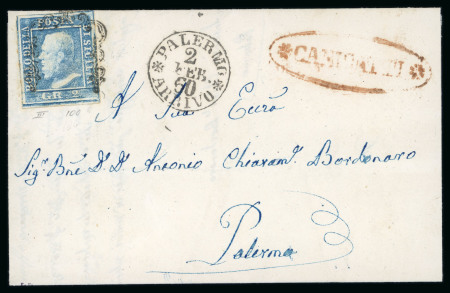 BOLLO DELLA POSTA DI SICILIA
GR. 2.
III 104
* PALERMO *
2
FEB.
60
ARRIVO
* CANICATTI *
A Sua Ecc.za
Sig.r Bñe D.n D. Antonio Chiaram.te Bordonaro
Palermo